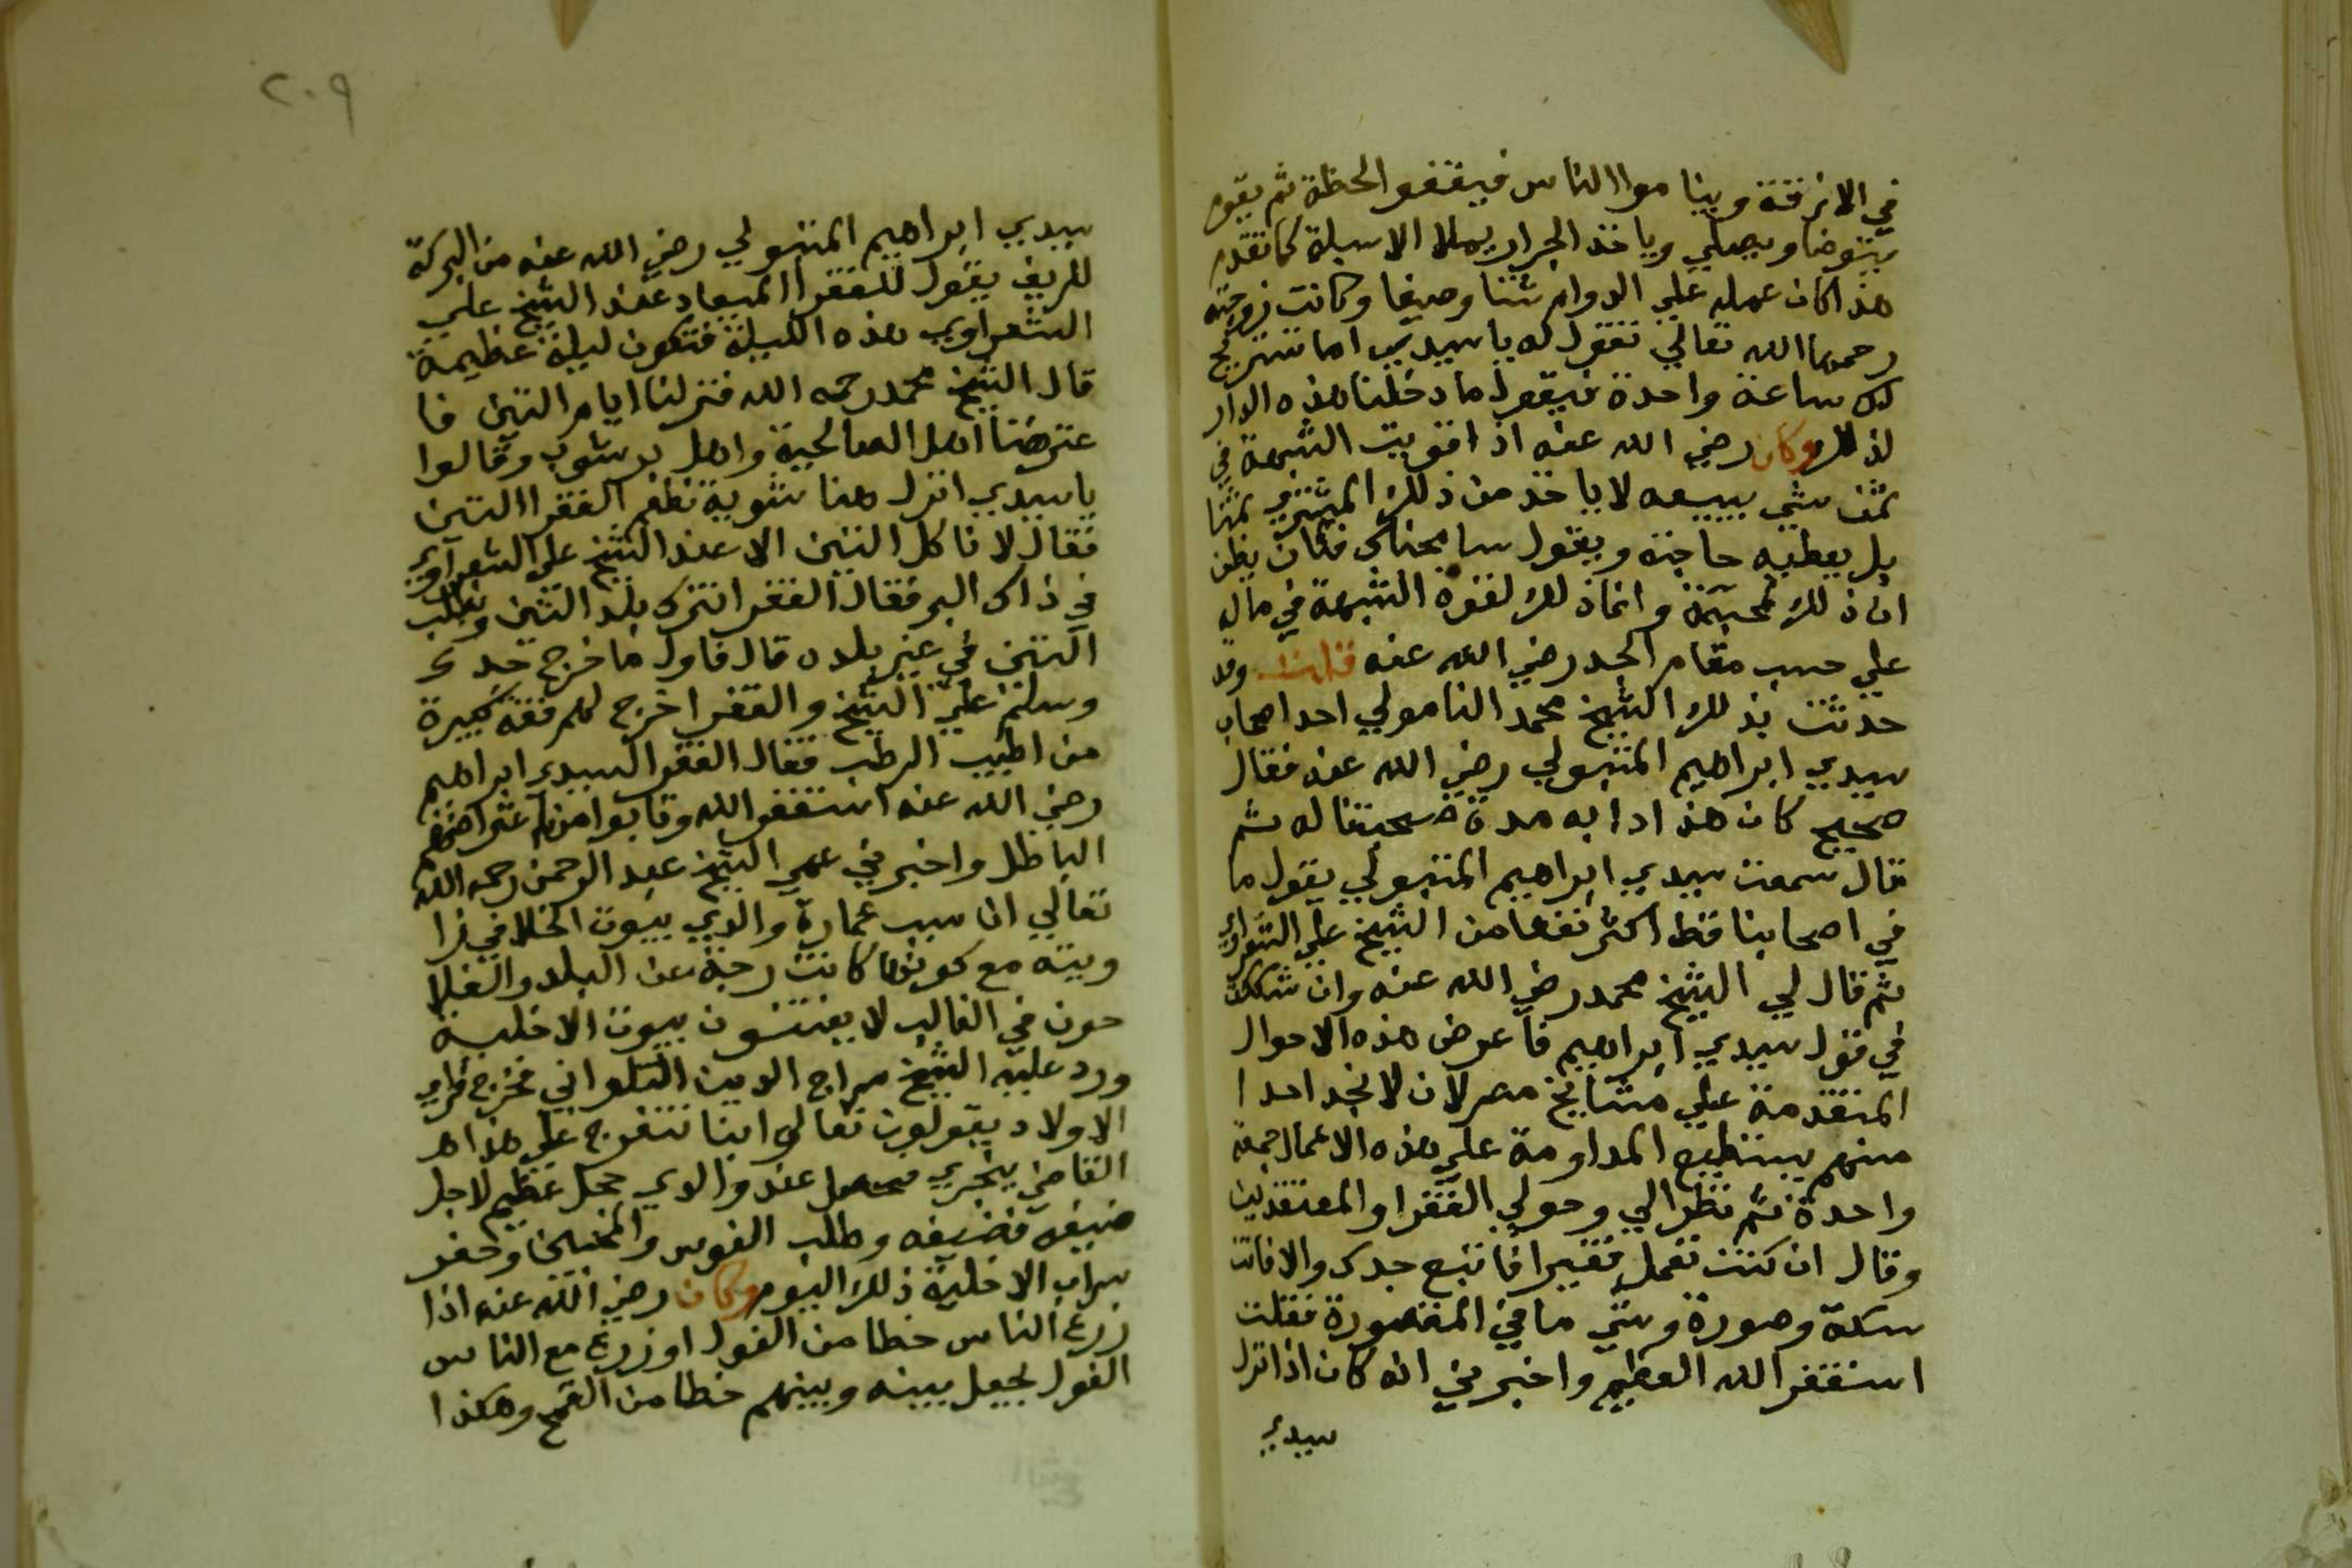 في الازقة وينامواالناس فيغفوالحظة ثم يقوم
يتوضا ويصلي وياخذ الجرار يملا الاسبلة كما تقدم
هذا كان عمله علي الدوام شتا وصيفا وكانت زوجته
رحمهاالله تعالي تقول له ياسيدي اما تستريح
لك ساعة واحدة فيقول ما دخلنا هذه الدار
لذلك وكان رضي الله عنه اذا قويت الشبهة في
ثمن شي يبيعه لا ياخذ من ذلك المشتري ثمنا
بل يعطيه حاجته ويقول سامحناك فكان يظن
ان ذلك محبة وانما ذلك لقوة الشبهة في ماله
علي حسب مقام الجد رضي الله عنه قلت وقد
حدثت بذلك الشيخ محمد النامولي احد اصحاب
سيدي ابراهيم المتبولي رضي الله عنه فقال
صحيح كان هذا دابه مدة صحبتنا له ثم
قال سمعت سيدي ابراهيم المتبولي يقول ما
في اصحابنا قط اكثر نفعا من الشيخ علي الشعراوي
ثم قال لي الشيخ محمد رضي الله عنه وان شككت
في قول سيدي ابراهيم فاعرض هذه الاحوال
المتقدمة علي مشايخ مصر الان لا نجد احدا
منهم يستطيع المداومة علي هذه الاعمال جمعة
واحدة ثم نظر الي وحولي الفقرا والمعتقدين
وقال ان كنت تعمل فقيرا فاتبع جدك والا فانت
سكة وصورة وشي ما في المقصورة فقلت
استغفر الله العظيم واخبرني انه كان اذا نزل
سيدي
٢٠٩
سيدي ابراهيم المتبولي رضي الله عنه من البركة
للريف يقول للفقرا الميعاد عند الشيخ علي
الشعراوي هذه الليلة فتكون ليلة عظيمة
قال الشيخ محمد رحمه الله فنزلنا ايام التين فا
عترضنا اهل الصالحية واهل برشوب وقالوا
ياسيدي انزل هنا شوية نطعم الفقرا التين
فقال لا ناكل التين الا عند الشيخ علي الشعراوي
في ذاك البر فقال الفقرا نترك بلد التين ونطلب
التين في غير بلده قال فاول ما خرج جدك
وسلم علي الشيخ والفقرا اخرج لهم قفة كبيرة
من اطيب الرطب فقال الفقرا لسيدي ابراهيم
رضي الله عنه استغفر الله وتابوا من اعتراضهم
الباطل واخبرني عمي الشيخ عبد الرحمن رحمه الله
تعالي ان سبب عمارة والدي بيوت الخلا في زا
ويته مع كونها كانت رجة عن البلد والفلا
حون في الغالب لا يفتشون بيوت الاخلية
ورد عليه الشيخ سراج الدين التلواني فخرج فراي
الاولاد يقولون تعالي ابنا نتفرج علي هذا هـ
القاضي يخري عند والدي خجل عظيم لاجل
ضيفه فضيفه وطلب الفوس والمخبيخا وحفر
سراب الاخلية ذلك اليوم وكان رضي الله عنه اذا
زرع الناس خطا من الفول او زرع مع الناس
الفول يجعل بينه وبينهم خطا من القمح وهكذا